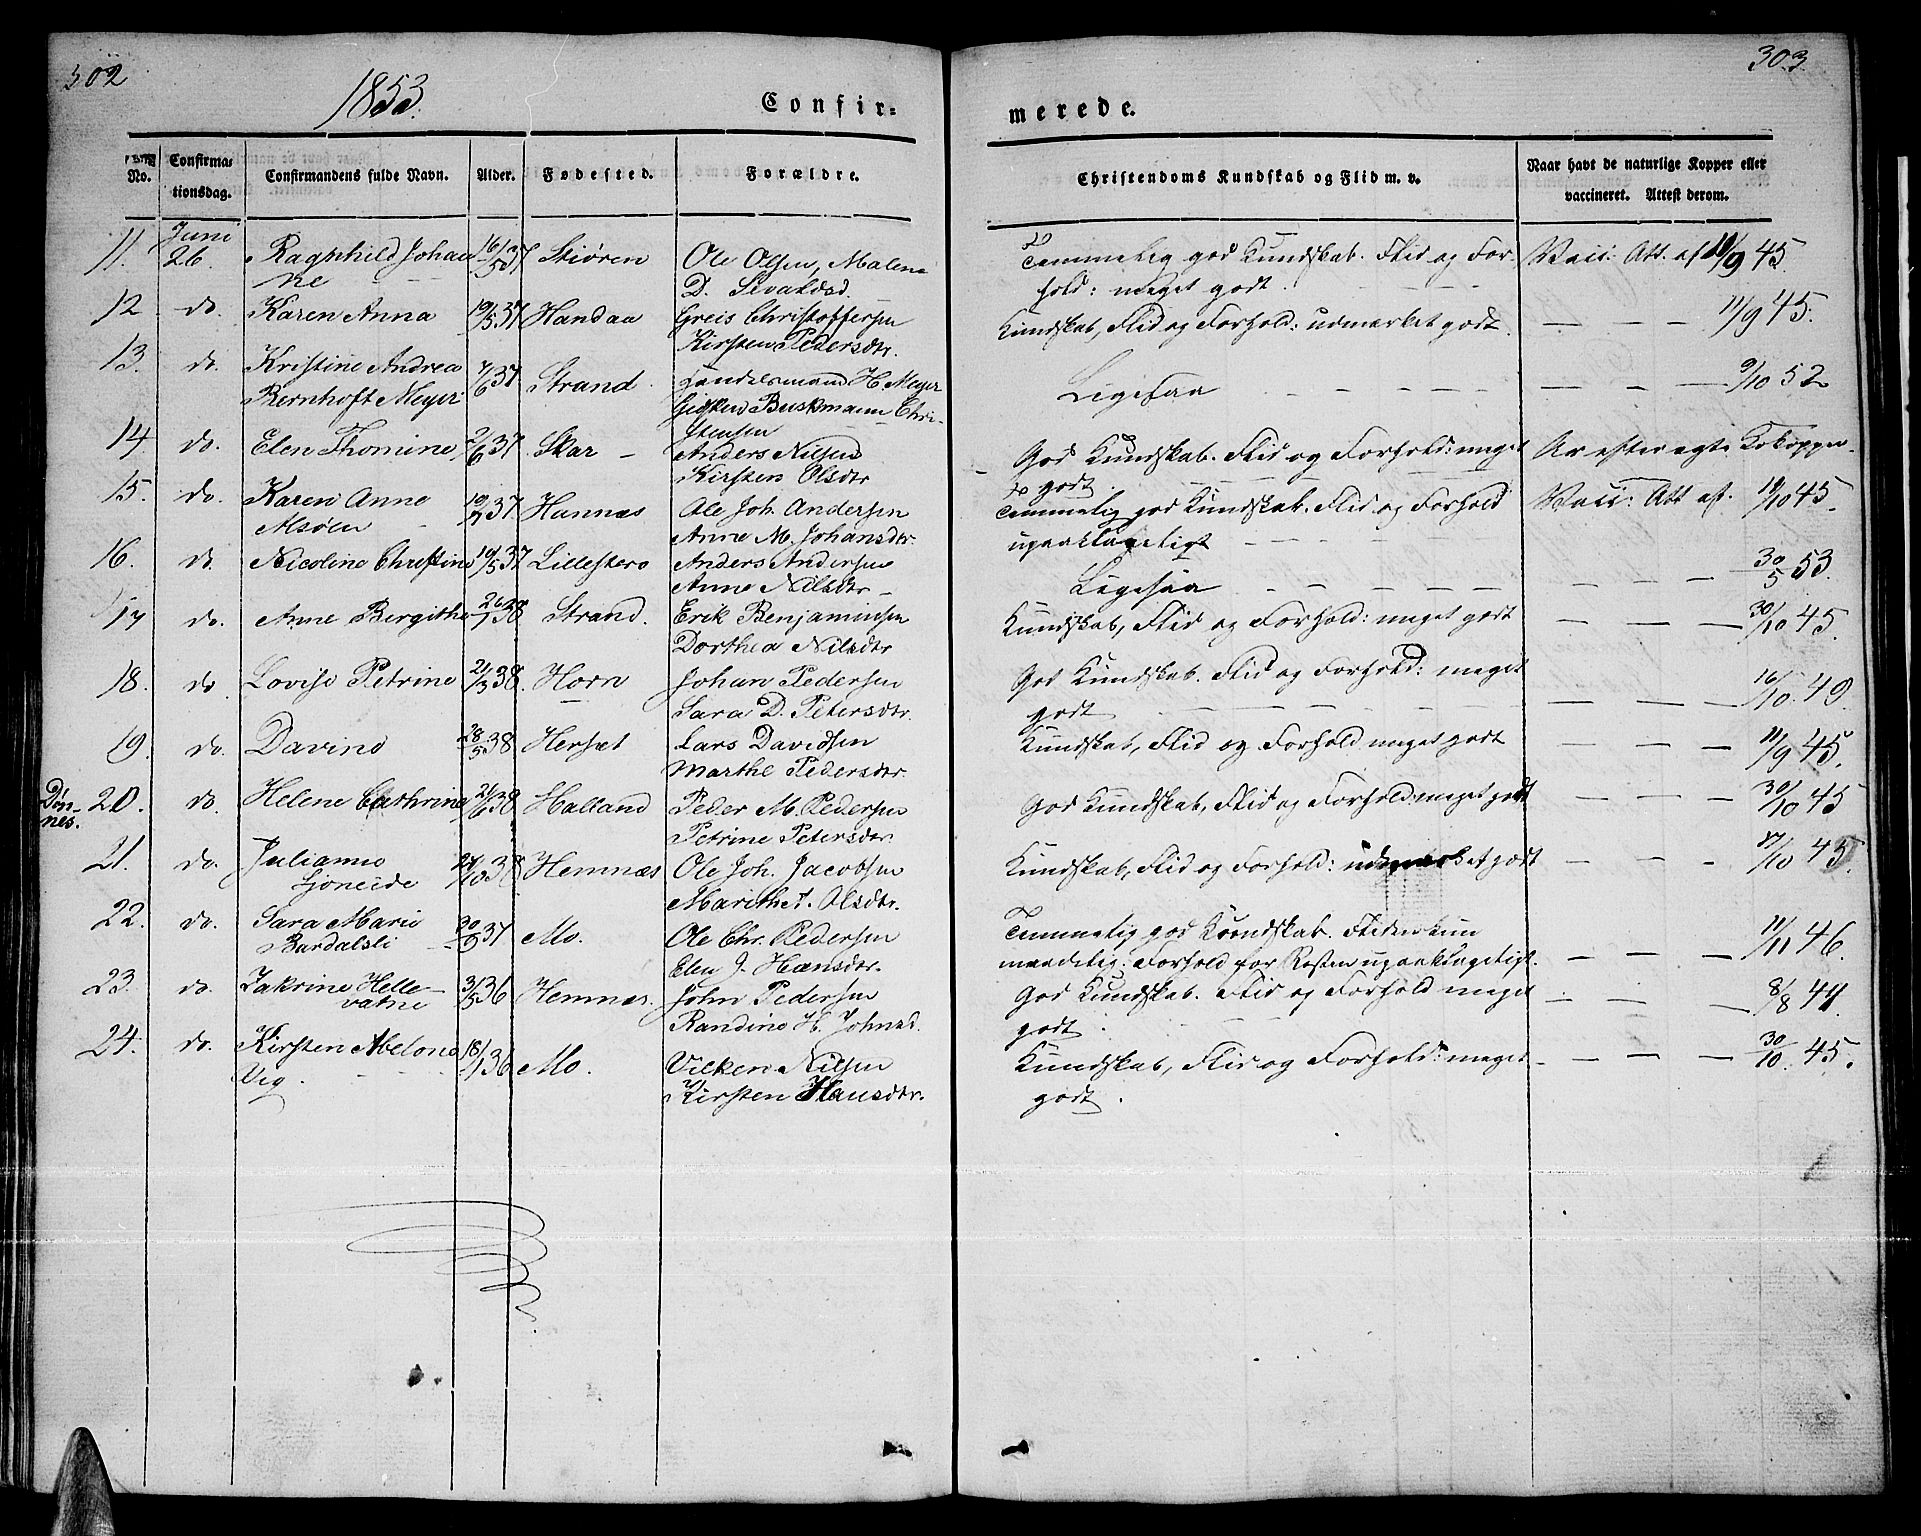 302
1853.
Confir=
No.
Confirma=
tionsdag.
Confirmandens fulde Navn.
Alder.
Fødested.
Forældre.
11. Juni 26. Raghnhild Johan 16/5 37 Stiøren Ole Olsen, Malena
ne D. Sivaldsd.
12 do. Karen Anna 19/5 37 Handaa Greis Christoffersen
Kirsten Pedersdtr.
13. do. Kristine Andrea 7/6 37 Strand. Handelsmand H. Meyer
Bernhoft Meyer Gidsken Buskmann Chri-
stensen
14. do. Elen Thomine 2/6 37 Skar – Anders Nilsen
Kirsten Olsdtr
15. do. Karen Anne 19/7 37 Hannæs Ole Joh. Andersen
Alsøen Anne M. Johansdtr.
16. do. Nicoline Christine 19/5 37 Lillestero Anders Andersen
Anne Nilsdtr –
17 do. Anne Bergithe 26/1 38 Strand. Erik Benjaminsen
Dorthea Nilsdtr
18. do Lovise Petrine 21/3 38. Horn Johan Pedersen
Sara D. Petersdtr.
19. do. Davine 28/5 38 Hersæt Lars Davidsen
Marthe Pedersdtr.
Døn-
nes. 20. do. Helene Cathrine 21/6 38 Halland Peder M. Pedersen
Petrine Petersdtr.
21. do. Julianne 24/10 38 Hemnæs Ole Joh. Jacobsen
Ljoneide Marithe T. Olsdtr.
22. do. Sara Marie 30/9 37 Mo. Ole Chr. Pedersen
Bardalsli Elen J. Hansdtr.
23. do. Zakrine Helle- 3/5 36 Hemnæs. John Pedersen
vatne Randine H. Johnsd.
24. do. Kirsten Abelone 18/1 36 Mo. Vilken Nilsen
Vig. Kirsten Hansdtr.
303.
merede.
Christendoms Kundskab og Flid m. v.
Naar havt de naturlige Kopper eller
vaccineret. Attest derom.
Temmelig god Kundskab. Flid og For- Vacc: Att. af 11/9 45.
hold: meget godt.
Kundskab, Flid og Forhold: udmærket godt. — — 11/9 45.
Ligesaa — — — 9/10 52
God Kundskab. Flid og Forhold: meget Ar efter ægte Kokopper.
godt.
Temmelig god Kundskab. Flid og Forhold Vacc: Att af. 19/10 45.
upaaklageligt
Ligesaa — — — 30/5 53.
Kundskab, Flid og Forhold: meget godt — — — 30/10 45.
God Kundskab. Flid og Forhold: meget
godt — — — 16/10. 49.
Kundskab, Flid og Forhold meget godt — — — 11/9 45.
God Kundskab, Flid og Forhold meget godt — — — 30/10 45
Kundskab, Flid og Forhold: udmærket godt — — — 17/10 45.
Temmelig god Kundskab. Fliden kun
maadelig; Forhold for Resten upaaklageligt. — — — 11/11 46.
God Kundskab. Flid og Forhold meget — — — 8/8 44.
godt.
Kundskab, Flid og Forhold: meget — — — 30/10. 45.
godt.